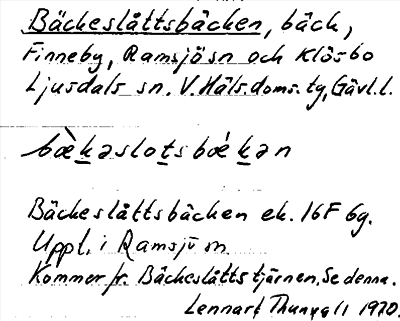 Bäckeslåttsbäcken, bäck,
Finneby, Ramsjö sn och Klösbo
Ljusdals sn. V. Häls. doms. tg, Gävl. l.
bæ̀k̠əslot̠sbǽk̠ən
Bäckeslåttsbäcken ek. 16F 6g.
Uppt. i Ramsjö sn.
Kommer fr. Bäckeslåttstjärnen. Se denna.
Lennart 1970.